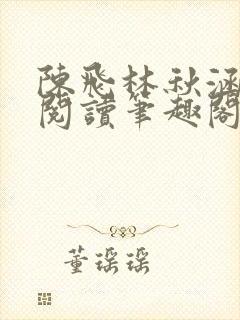 陳飛林秋涵
閱讀筆趣閣
董瑶瑶